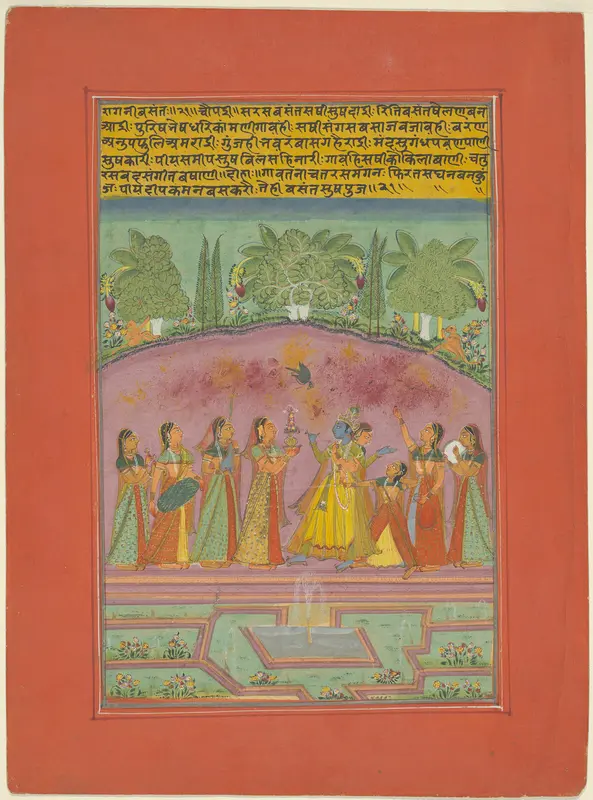 रागनीबसंतः॥२१॥चौपई॥सरसबसंतसषीसुषदाई: रितिबसंतषेलणबन
आई: पुरिषभेषधरिकांमणीगावही: सषीसंगसबसाजबजांवही: बरण
अनुपफुलिअमराई: गुंजहीभवरबासगहेराई: मंदसुगंधपवणपाणी
सुषकारी: पीयसमीपसुषबिलसहिनारी: गावहिसषीकोकिलाबाणी: चतु
रसबदसंगीतबषाणी॥दोहा॥गावतनाचतरसमगन: फिरतसघनबनकुं
ज: पीयेदीपकमनबसकरी: तेहीबसंतसुषपुज॥२१॥ ॥ ॥ ॥